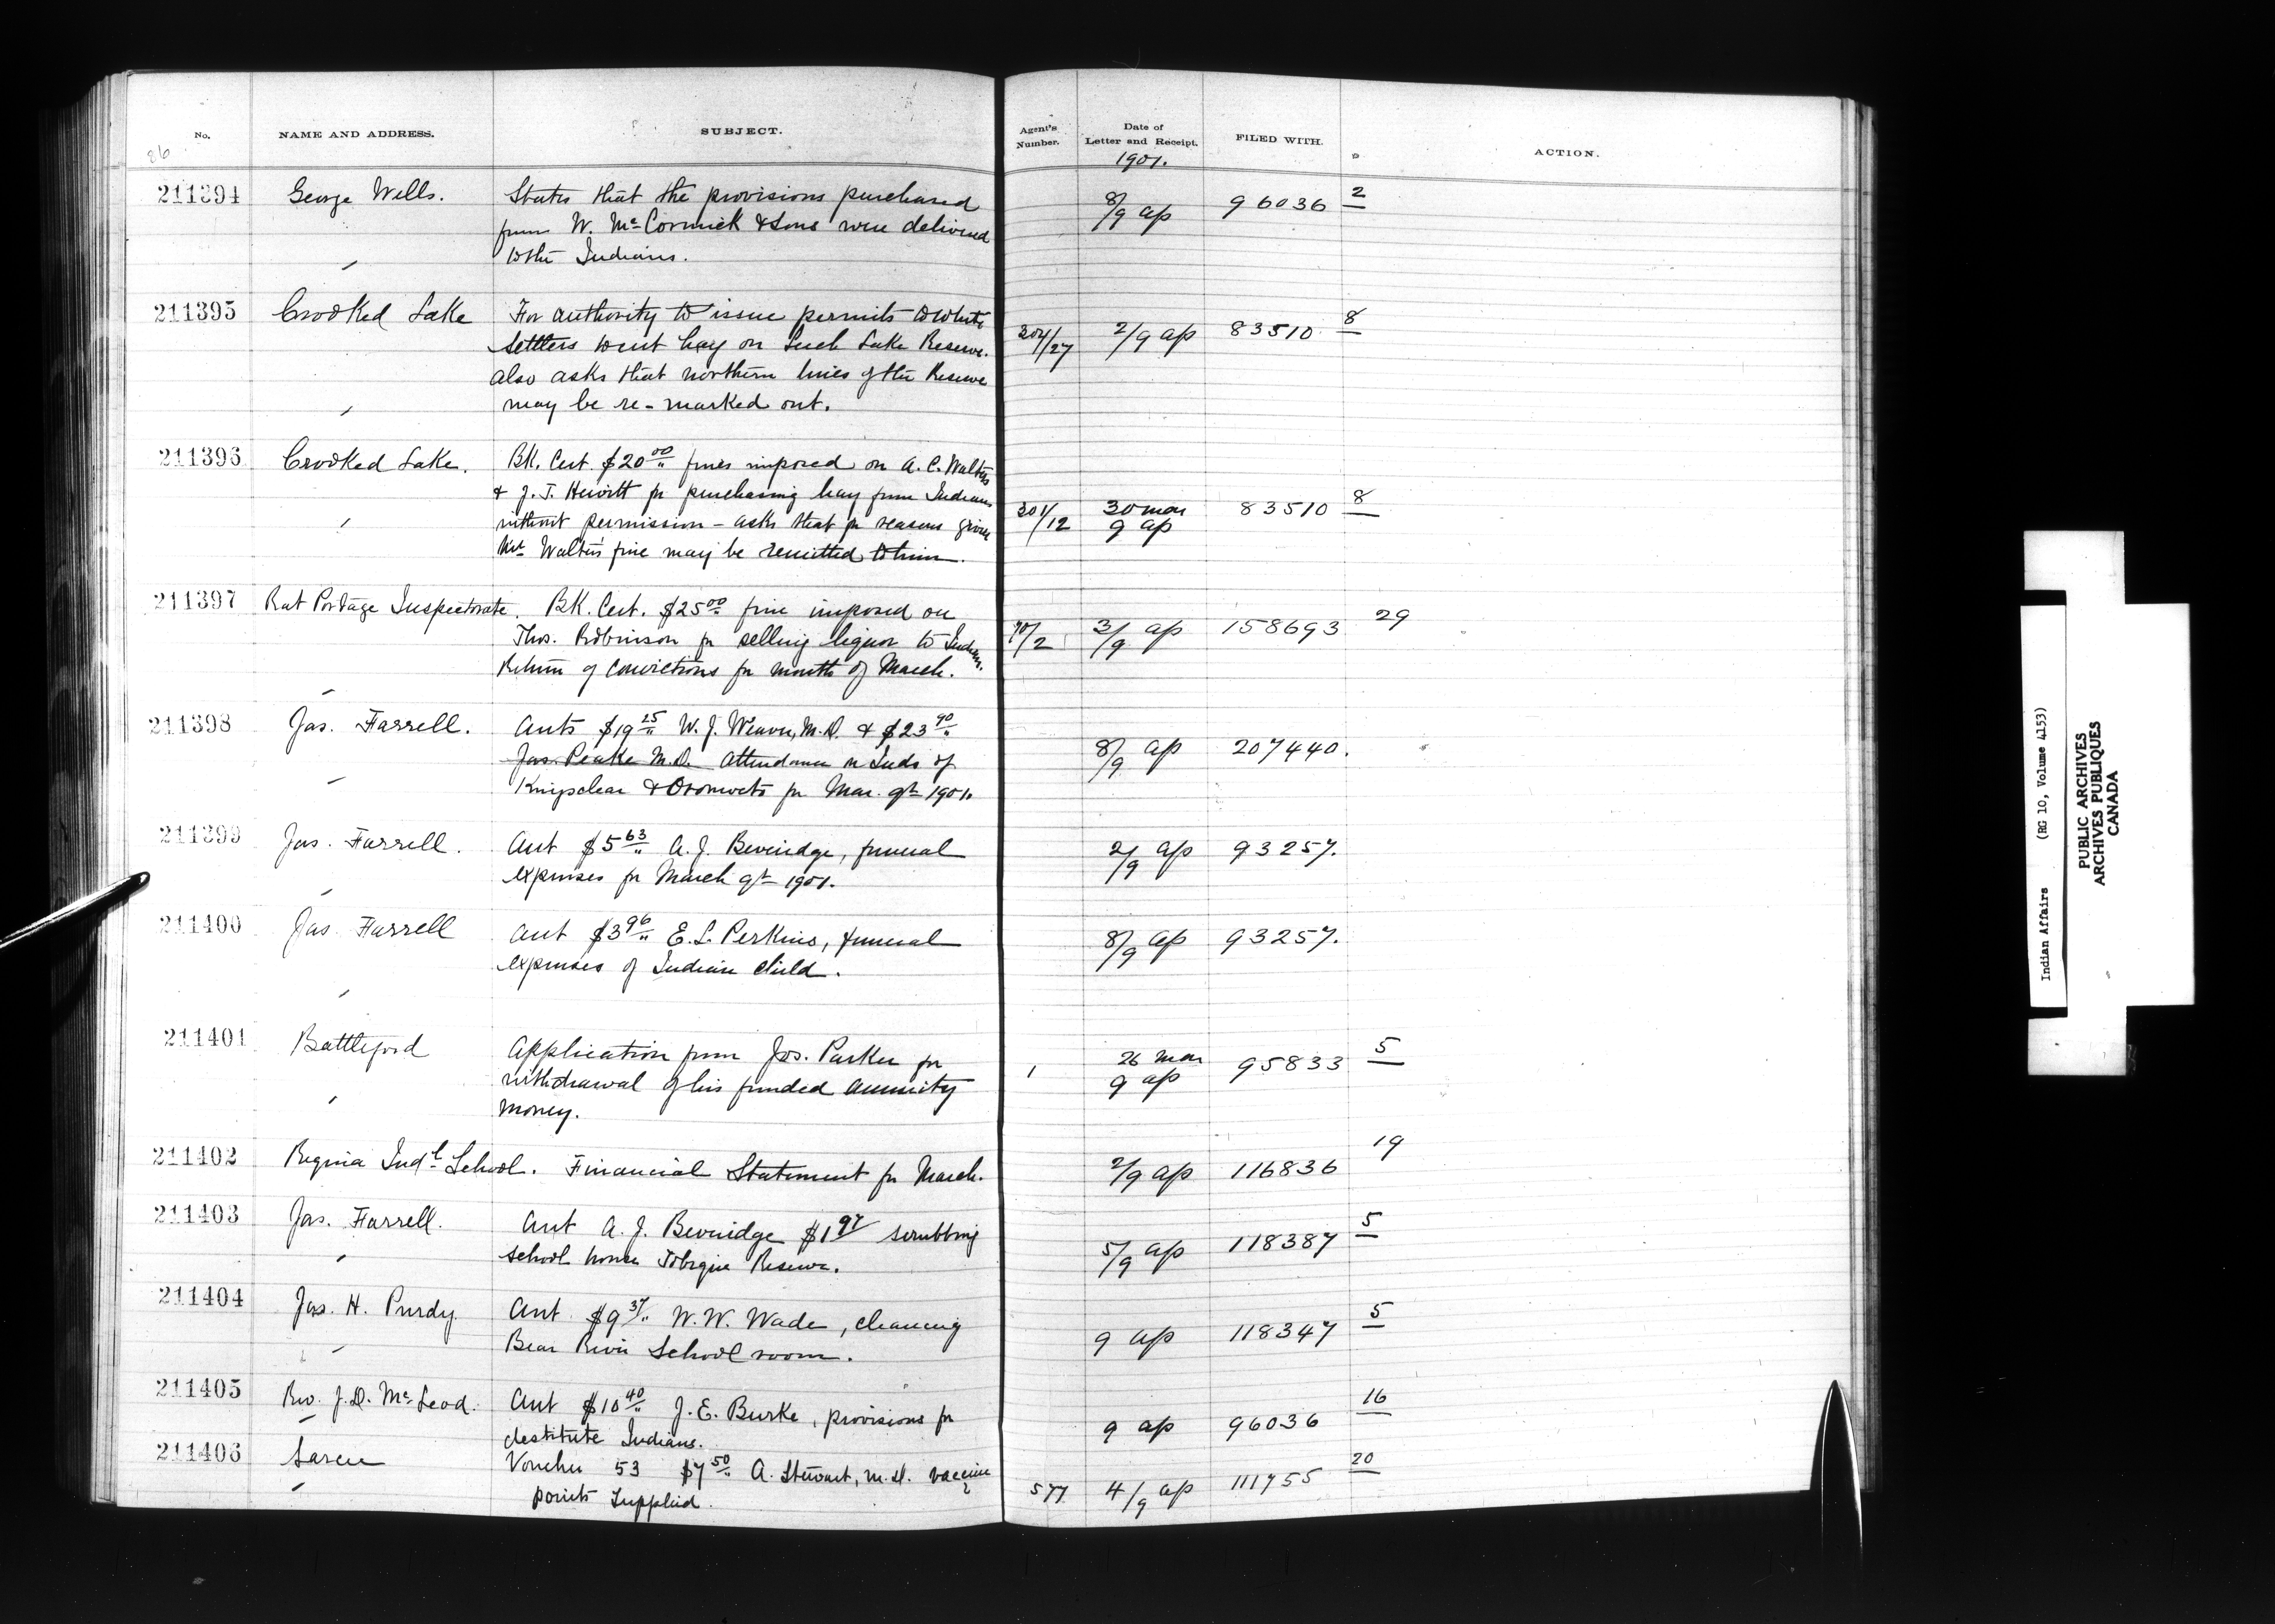 No.
NAME AND ADDRESS.
SUBJECT.
Agent's Number.
Date of Letter and Receipt.
FILED WITH.
ACTION.
86
1901.
211394 George Wells. States that the provisions purchased
from W. McCormick & Sons were delivered
to the Indians.
8/9 ap 96036 2
211395 Crooked Lake For authority to issue permits to white
settlers to cut hay on Leech Lake Reserve.
also asks that northern lines of the Reserve
may be re-marked out.
304/27 2/9 ap 83510 8
211396 Crooked Lake. Bk. Cert. $20.00 fines imposed on A. C. Walters
& J. T. Hewitt for purchasing hay from Indians
without permission - asks that for reasons given
Walters fine may be remitted to him.
301/12 30 mar 9 ap 83510 8
211397 Rat Portage Inspectorate. Bk. Cert. $25.00 fine imposed on
Thos. Robinson for selling liquor to Indians.
Return of convictions for month of March.
70/2 3/9 ap 158693 29
211398 Jas. Farrell. Acts $19.25 W. J. Weaver, M.D. & $23.90
Jas. Peake M.D. attendance on Inds of
Kingsclear & Oromocto for Mar. qr 1901.
8/9 ap 207440.
211399 Jas. Farrell. Act $5.63 A. J. Beveridge, funeral
expenses for March qr 1901.
2/9 ap 93257.
211400 Jas. Farrell Act $3.96 E. L. Perkins, funeral
expenses of Indian child.
8/9 ap 93257.
211401 Battleford Application from Jos. Parker for
withdrawal of his funded annuity
money.
1 26 mar 9 ap 95833 5
211402 Regina Indl School. Financial Statement for March.
2/9 ap 116836 19
211403 Jas. Farrell. Act A. J. Beveridge $1.97 scrubbing
school house Tobique Reserve.
5/9 ap 118387 5
211404 Jas. H. Purdy Act $9.37 W. W. Wade, cleaning
Bear River School room.
9 ap 118347 5
211405 Rev. J. D. McLeod. Act $10.40 J. E. Burke, provisions for
destitute Indians.
9 ap 96036 16
211406 Sarcee Voucher 53 $7.50 A. Stewart, M.D. vaccine
points supplied.
577 4/9 ap 111755 20
Indian Affairs (RG 10, Volume 4153)
PUBLIC ARCHIVES
ARCHIVES PUBLIQUES
CANADA